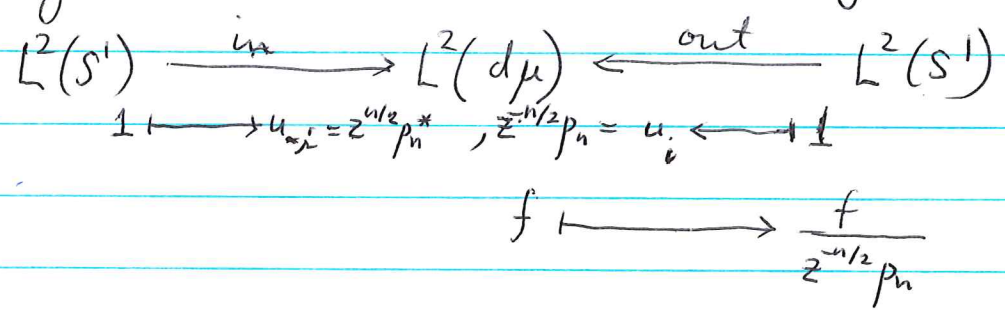 L²(S¹) —in→ L²(dμ) ←out— L²(S¹)
1 ⟼ u₋ᵢ = z^{n/2} pₙ* , z^{-n/2} pₙ = uᵢ ⟻ 1
f ⟼ f / (z^{-n/2} pₙ)